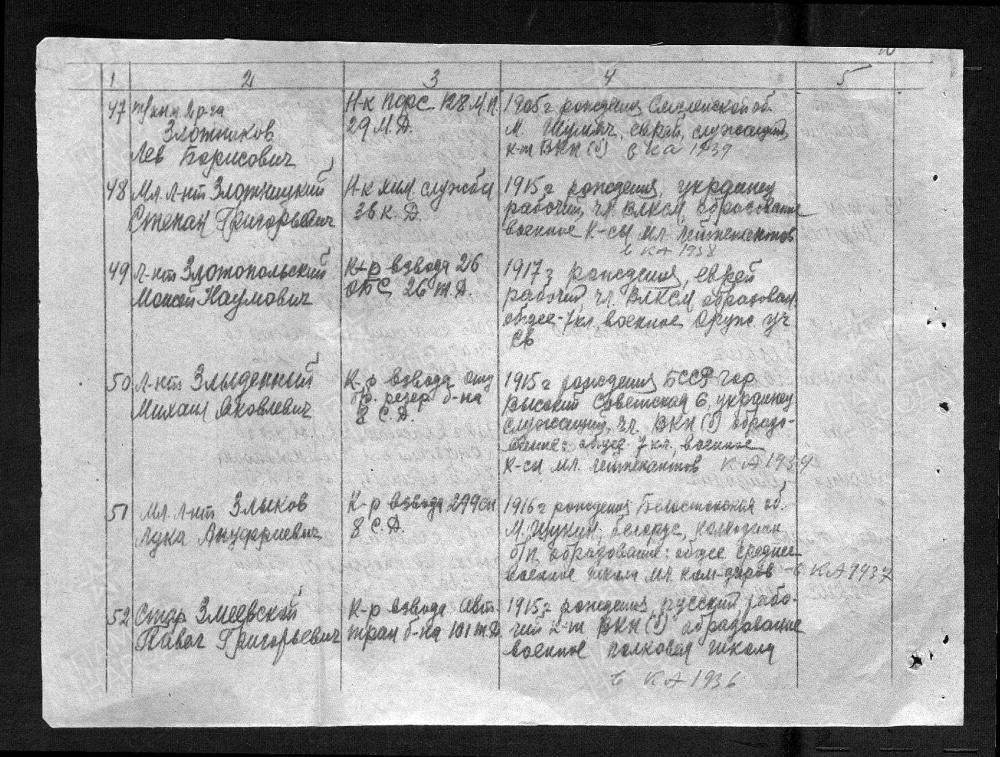 1 2 3 4 5
47 Злотников
Лев Борисович
Н-к ПФРС 128 М.П.
29 М.Д.
1905 г рождения Смоленской об.
еврей, служащий,
к-т ВКП(б) в КА 1939
48 Мл. л-нт Злотницкий
Степан Григорьевич
Н-к хим службы
36 К.Д.
1915 г рождения, украинец
рабочий, чл. ВЛКСМ, образование
военное К-сы мл. лейтенантов
в КА 1938
49 Л-нт Злотопольский
Моисей Наумович
К-р взвода 26
ОБС 26 т.Д.
1917 г рождения, еврей
рабочий, чл. ВЛКСМ образован
общее - 7 кл., военное Оруж. уч
СВ
50 Л-нт Злыденный
Михаил Яковлевич
К-р взвода
резер б-на
8 С.Д.
1915 г рождения БССР гор
Высокий Советская 6, украинец
служащий, чл. ВКП(б) образо-
вание: общее 7 кл., военное
К-сы мл. лейтенантов КА 1939
51 Мл. л-нт Злыков
Лука Ануфриевич
К-р взвода 299 сп
8 С.Д.
1916 г рождения Белостокская об.
М. Щукин, белорус, колхозник
б/п, образование: общее среднее
военное школа мл. ком-диров - в КА 1937
52 Стар Змеевской
Павел Григорьевич
К-р взвода Авт.
тран б-на 101 т.Д.
1915 г рождения, русский, рабо-
чий к-т ВКП(б) образование
военное полковая школа
в КА 1936